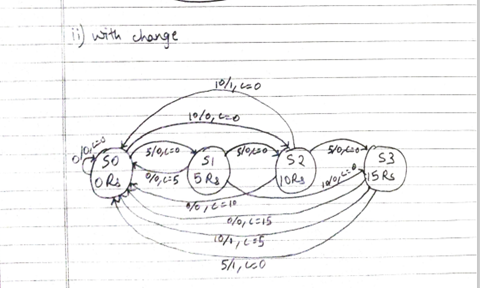 ii) with change
10/1, c=0
10/0, c=0
0/0, c=0
S0
0 Rs
5/0, c=0
0/0, c=5
S1
5 Rs
5/0, c=0
S2
10 Rs
5/0, c=0
10/0, c=0
S3
15 Rs
0/0, c=10
0/0, c=15
10/1, c=5
5/1, c=0